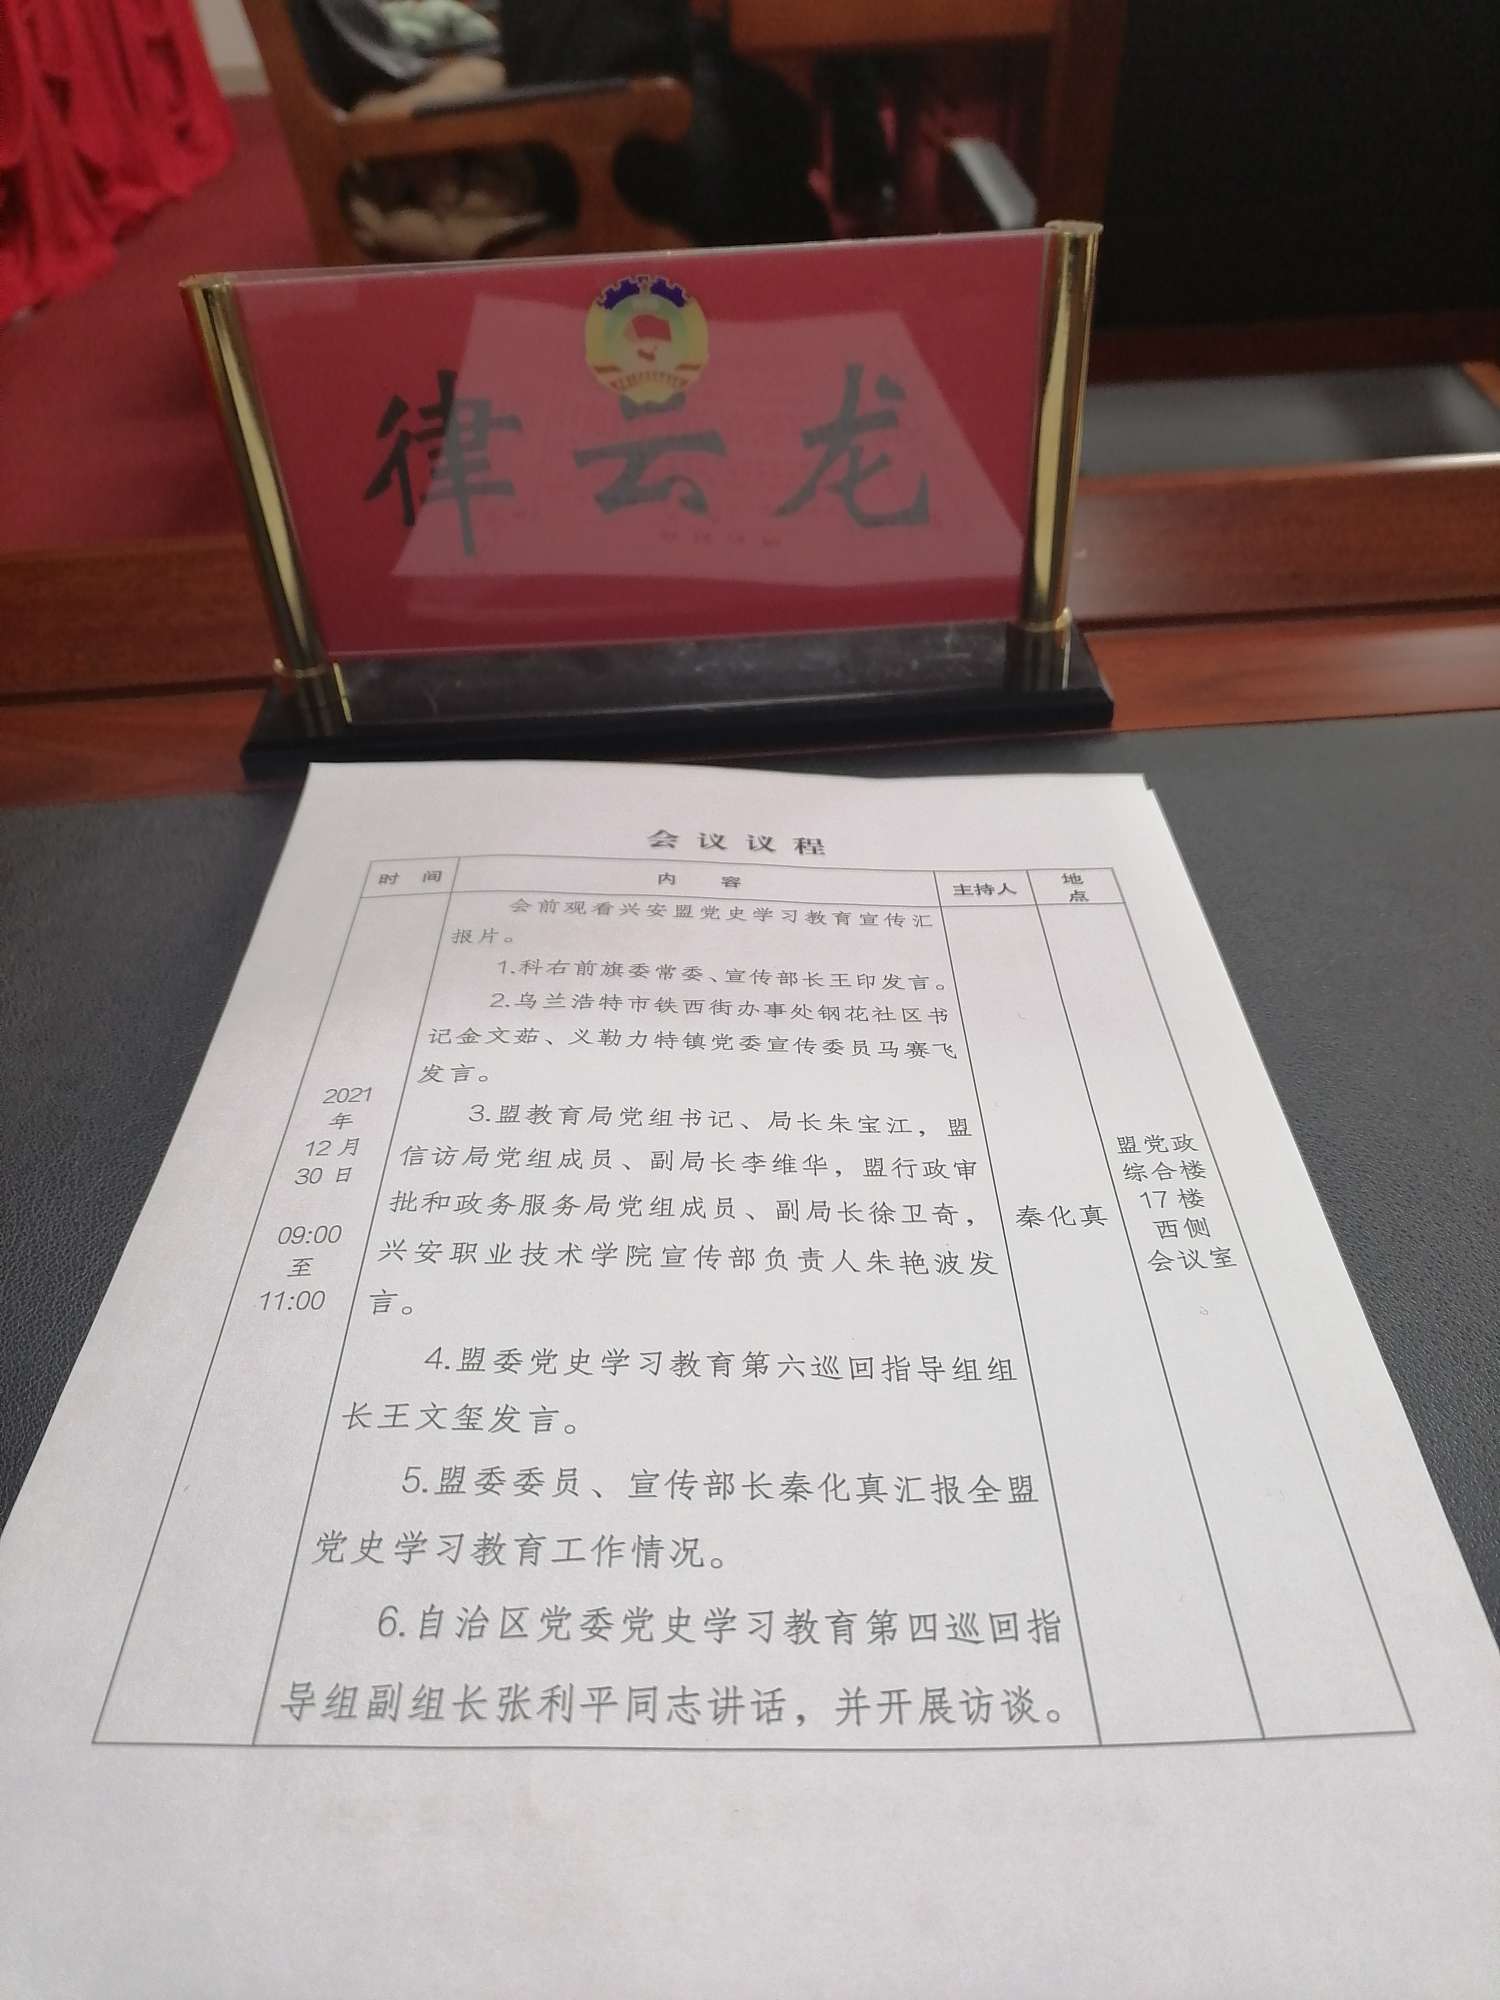 律云龙
会议议程
时间 内容 主持人 地点
会前观看兴安盟党史学习教育宣传汇
报片。
1.科右前旗委常委、宣传部长王印发言。
2.乌兰浩特市铁西街办事处钢花社区书
记金文茹、义勒力特镇党委宣传委员马赛飞
发言。
3.盟教育局党组书记、局长朱宝江，盟
信访局党组成员、副局长李维华，盟行政审
批和政务服务局党组成员、副局长徐卫奇，
兴安职业技术学院宣传部负责人朱艳波发
言。
4.盟委党史学习教育第六巡回指导组组
长王文玺发言。
5.盟委委员、宣传部长秦化真汇报全盟
党史学习教育工作情况。
6.自治区党委党史学习教育第四巡回指
导组副组长张利平同志讲话，并开展访谈。
2021
年
12月
30日
09:00
至
11:00
秦化真
盟党政
综合楼
17楼
西侧
会议室